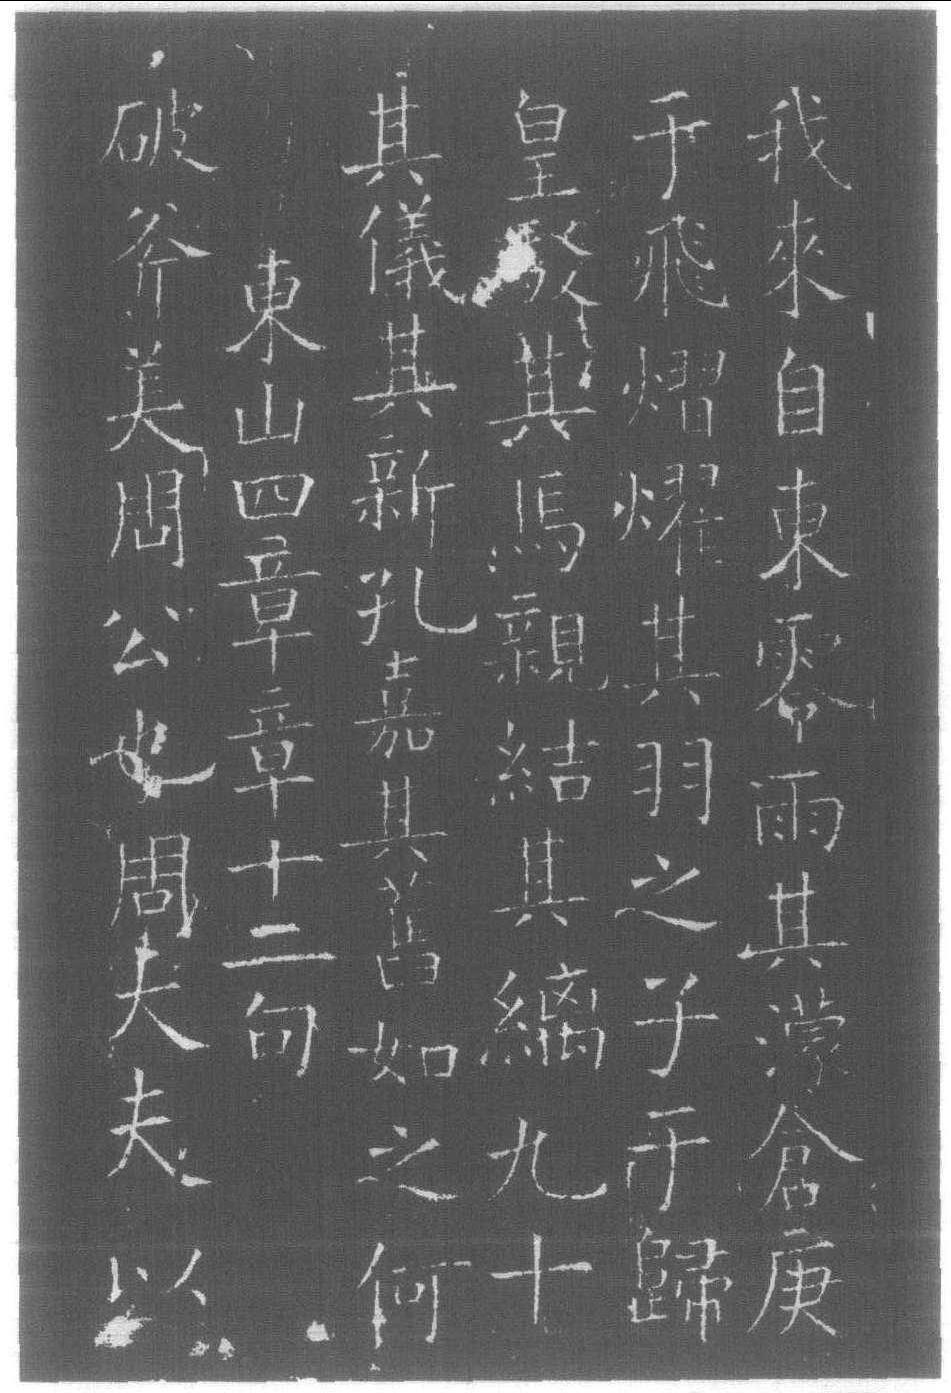 我來自東零雨其濛倉庚
于飛熠燿其羽之子于歸
皇駁其馬親結其縭九十
其儀其新孔嘉其舊如之何
東山四章章十二句
破斧美周公也周大夫以